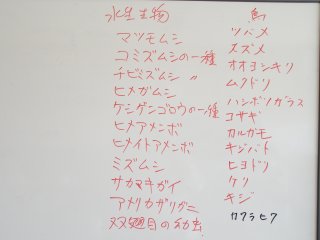 水生生物
マツモムシ
コミズムシの一種
チビミズムシ 〃
ヒメガムシ
ケシゲンゴロウの一種
ヒメアメンボ
ヒメイトアメンボ
ミズムシ
サカマキガイ
アメリカザリガニ
双翅目の幼虫
鳥
ツバメ
スズメ
オオヨシキリ
ムクドリ
ハシボソガラス
コサギ
カルガモ
キジバト
ヒヨドリ
ケリ
キジ
カワラヒワ